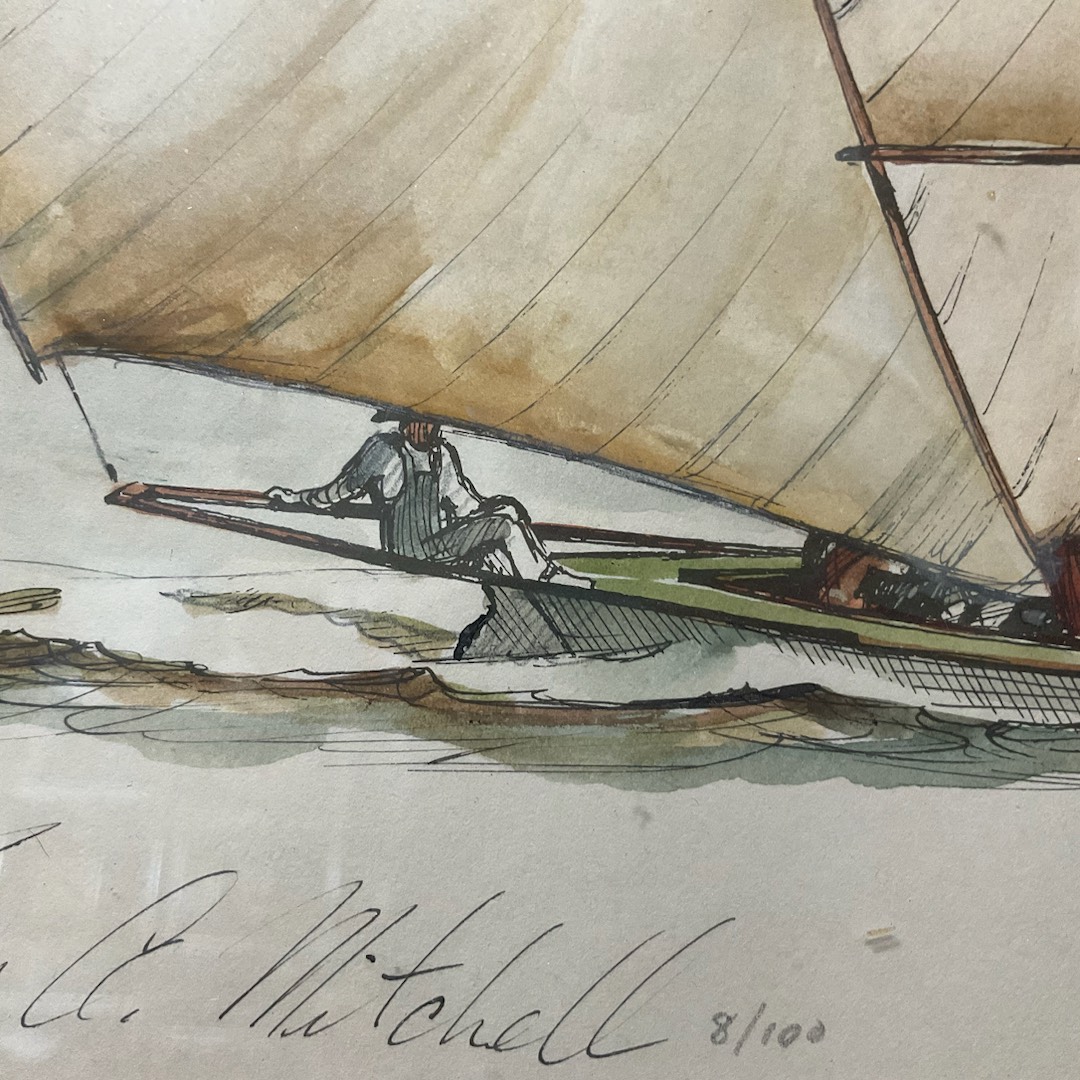 C. Mitchell 8/100